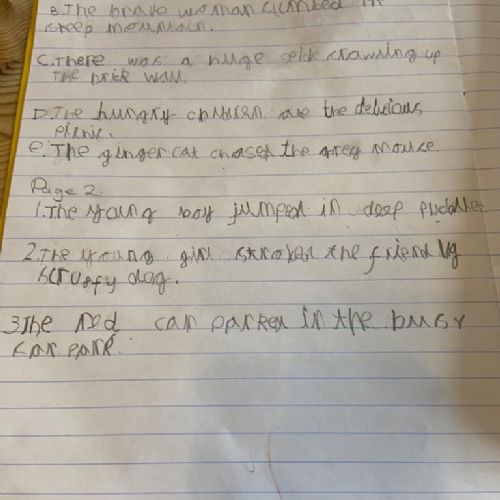 B. The brave woman climbed
steep mountain.
C. There was a huge spide crawling up
The brick wall.
D. The hungry children ate the delicious
picnic.
e. The ginger cat chased the grey mouse
Page 2
1. The young boy jumped in deep puddles
2. The young girl stroked the friendly
scruffy dog.
3 The red car parked in the busy
car park.